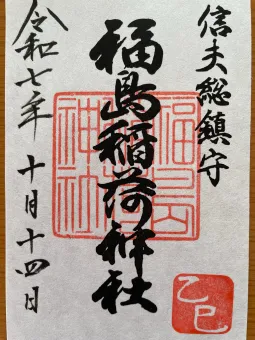 信夫総鎮守
福島稲荷神社
福島稲荷神社
乙巳
令和七年 十月十四日